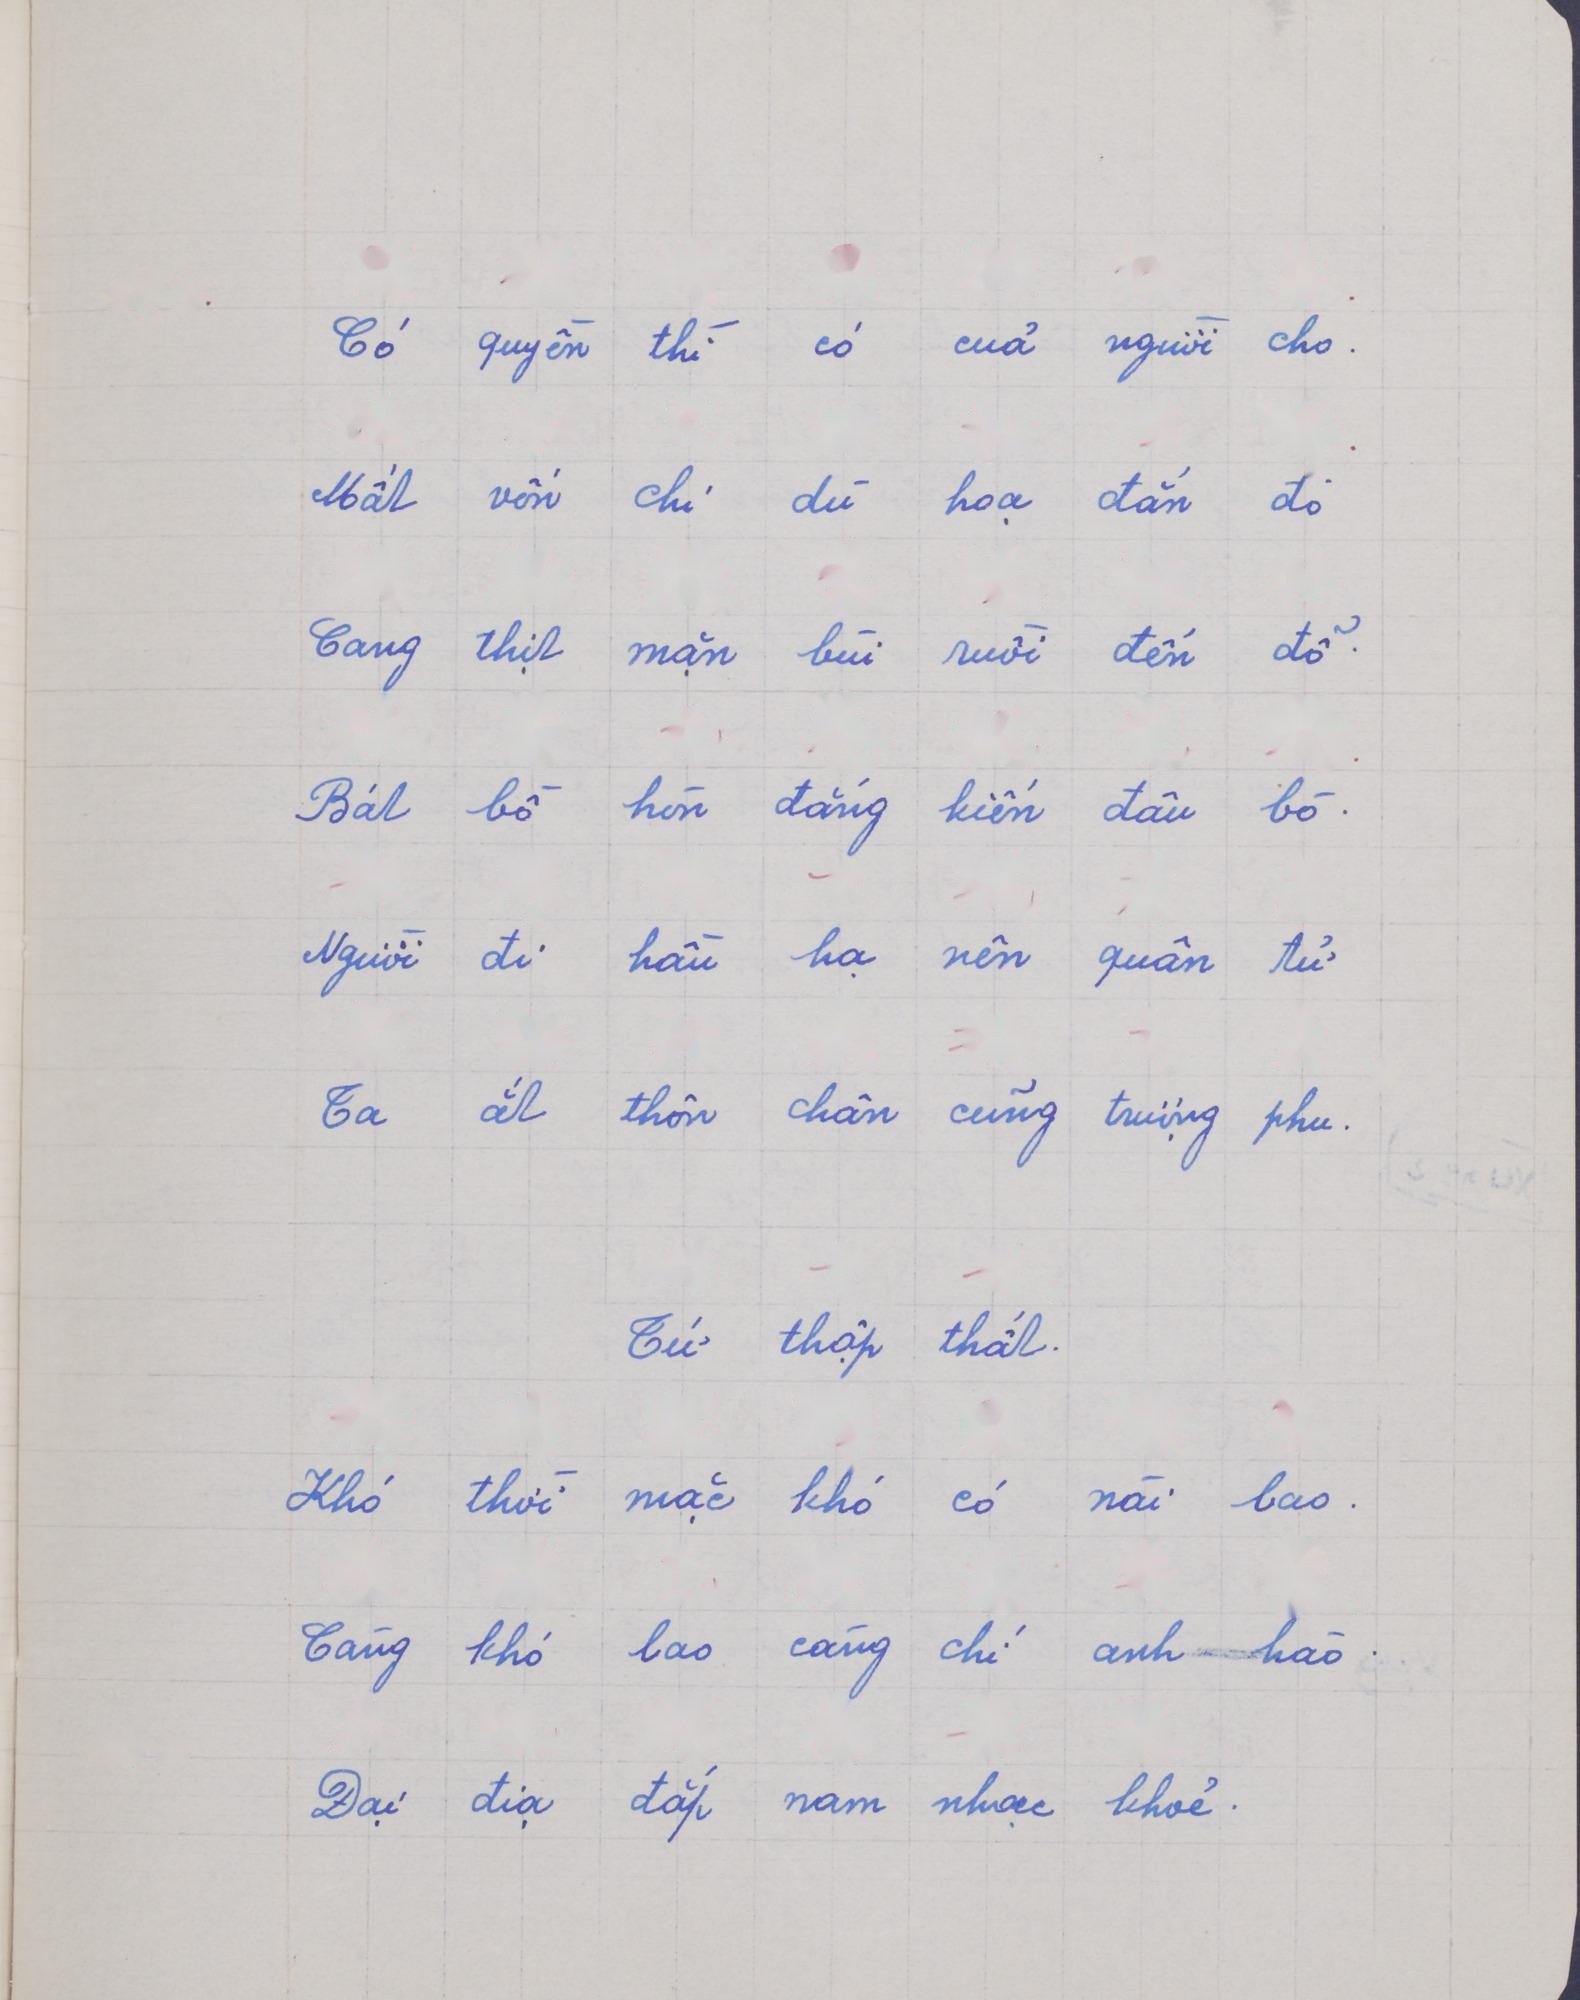 Có quyền thì có cuả người cho.
Mất vốn chi dù hoạ đắn đo
Cang thịt mặn bùi ruồi đến đỗ.
Bát bồ hòn đắng kiến đâu bò.
Người đi hầu hạ nên quân tử
Ta ắt thôn chân cũng trượng phu.
Tứ thập thất.
Khó thời mặc khó có nài bao.
Càng khó bao càng chí anh hào.
Đại địa đắp nam nhạc khoẻ.